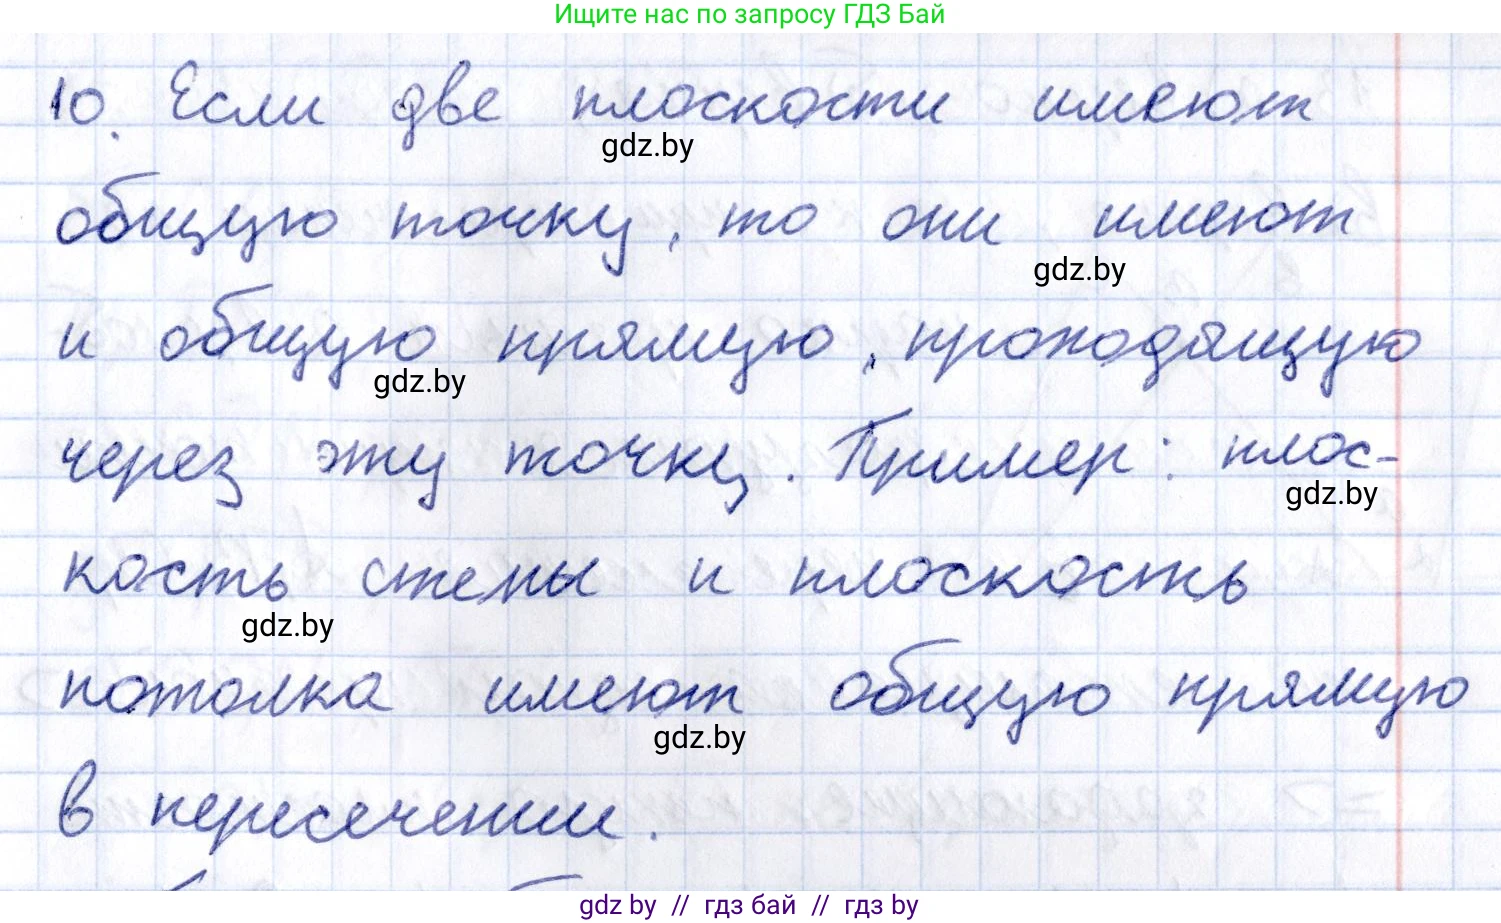 Ищите нас по запросу ГДЗ Бай
10. Если две плоскости имеют
gdz.by
общую точку, то они имеют
gdz.by
и общую прямую, проходящую
gdz.by
через эту точку. Пример: плос-
gdz.by
кость стены и плоскость
gdz.by
потолка имеют общую прямую
gdz.by
в пересечении.
gdz.by // гдз бай // гдз by